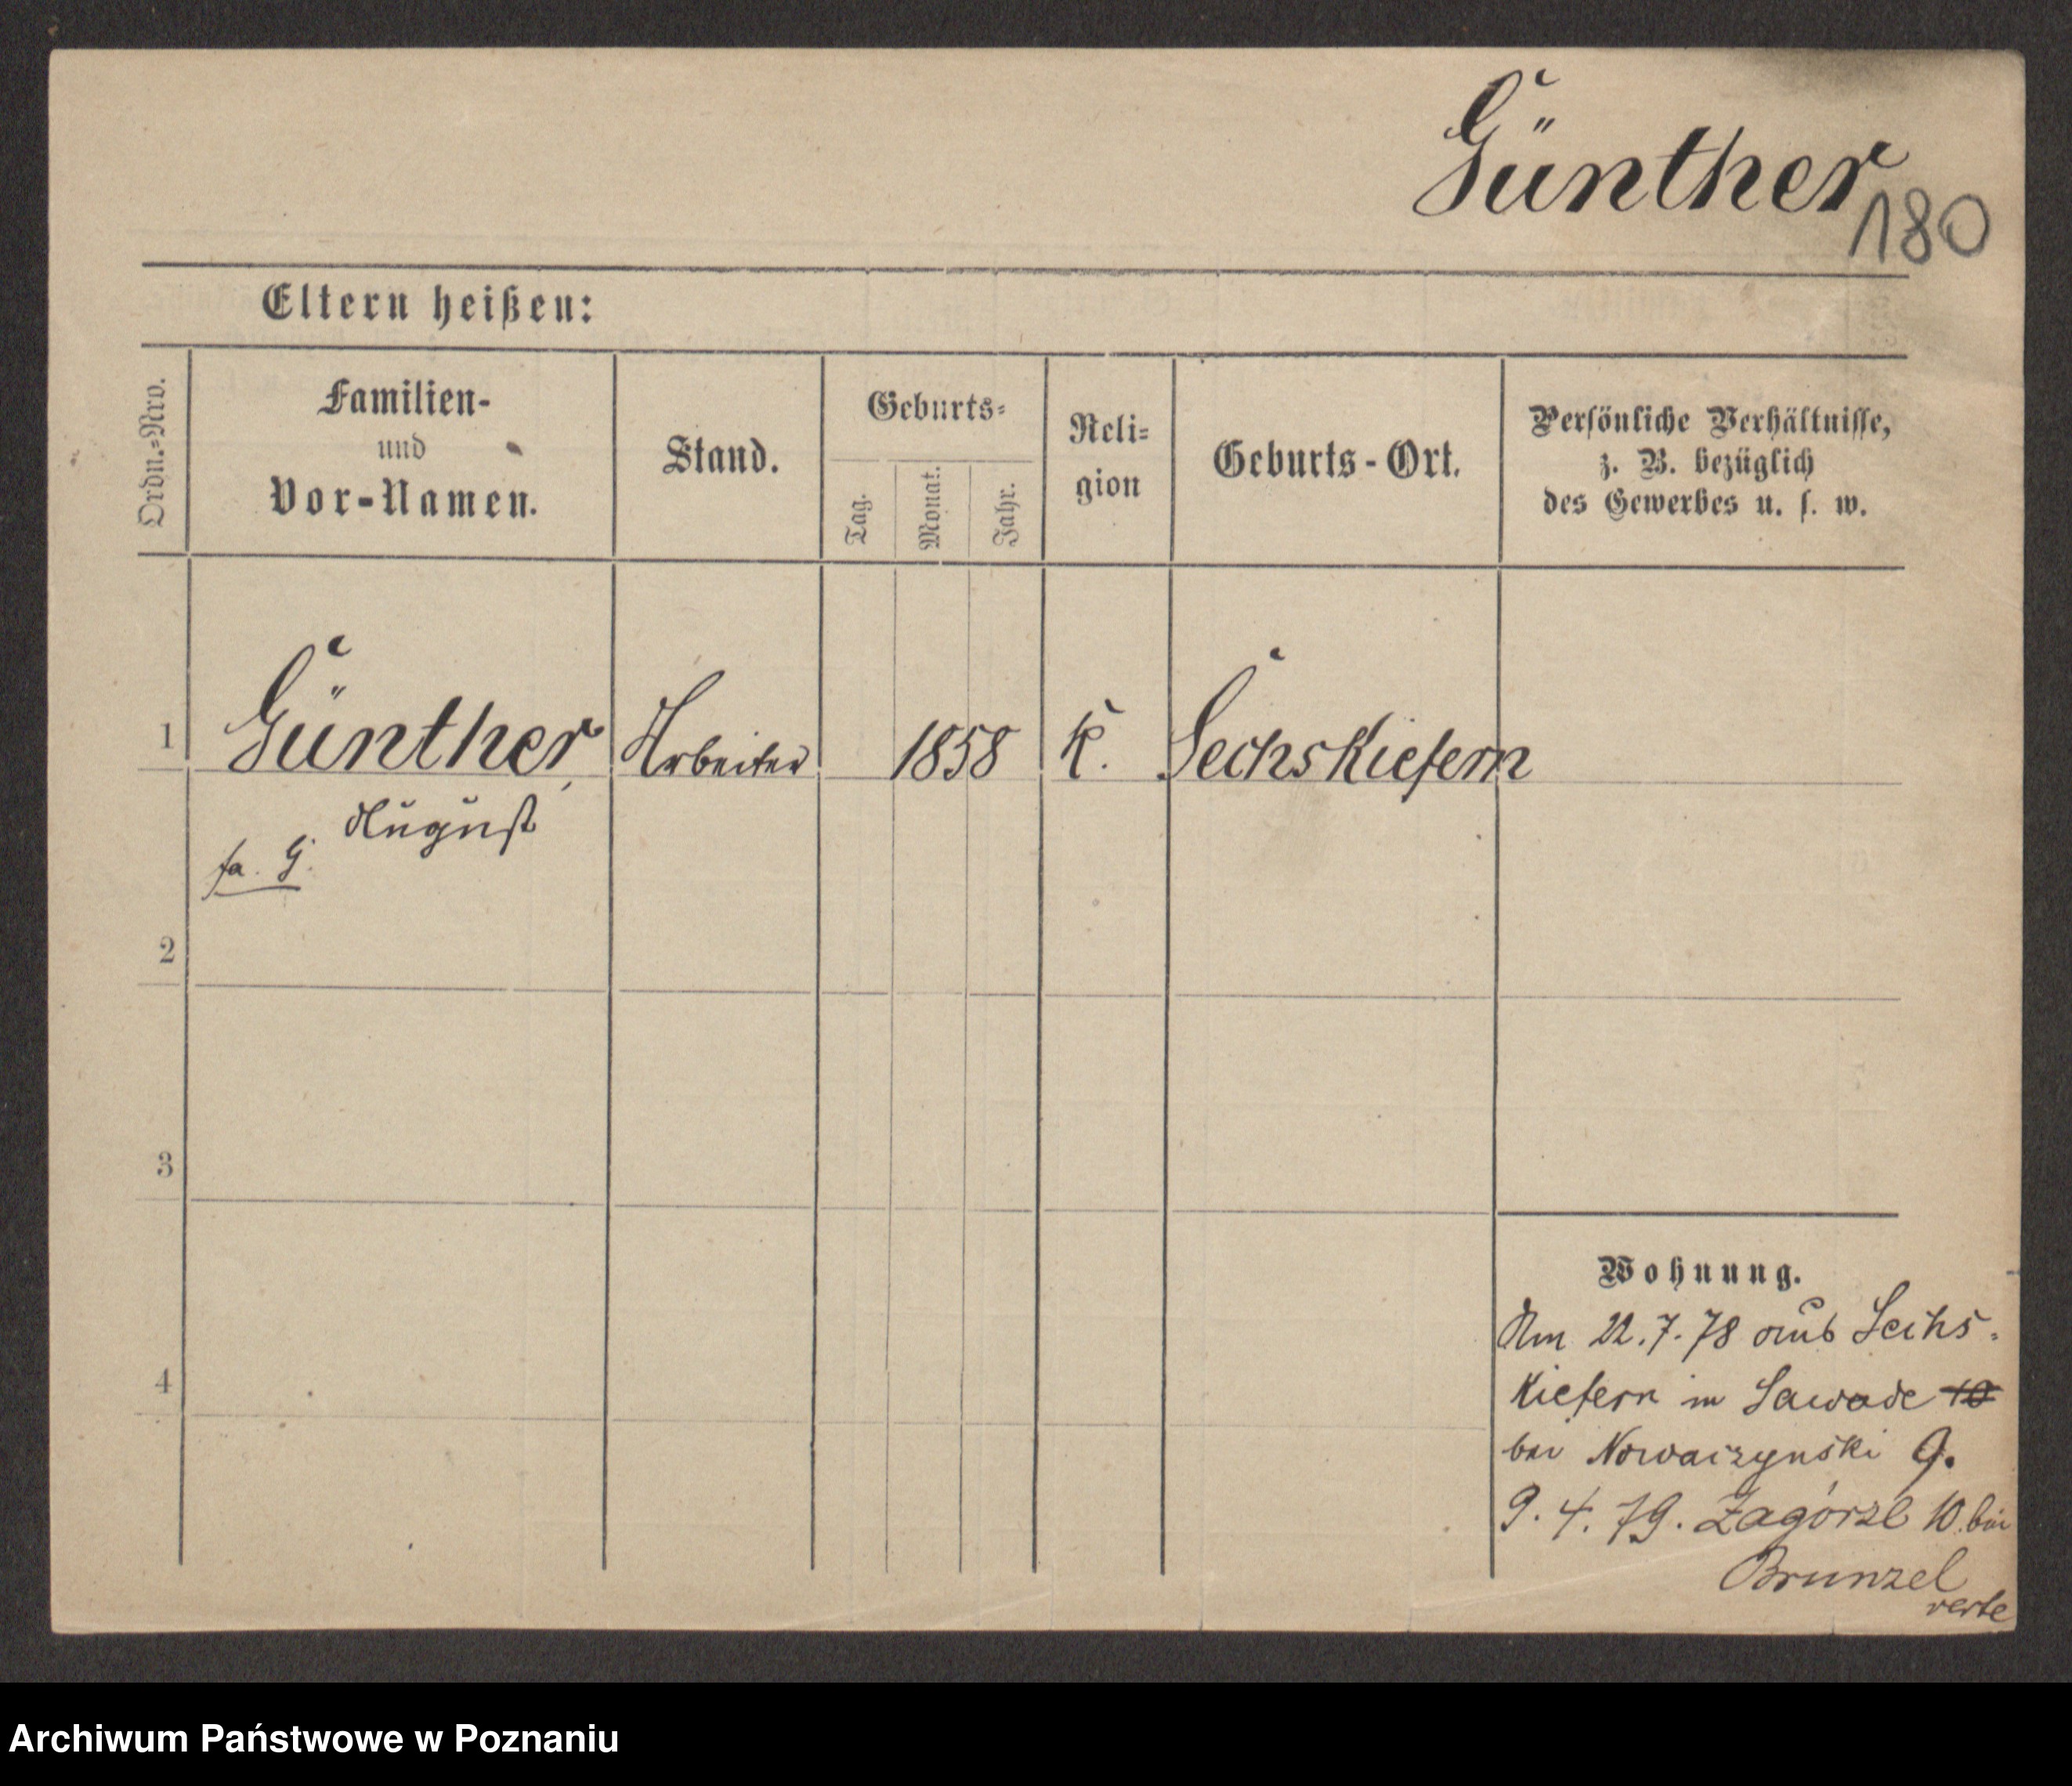 Günther
180
Eltern heißen:
Ordn.=Nro.
Familien-
und
Vor-Namen.
Stand.
Geburts=
Tag.
Monat.
Jahr.
Reli=
gion
Geburts-Ort.
Persönliche Verhältnisse,
z. B. bezüglich
des Gewerbes u. s. w.
1
Günther,
Arbeiter
1858
k.
Sechskiefern
August
fa. G.
2
3
4
Wohnung.
Am 22.7.78 aus Sechs-
kiefern in Sawade 10
bei Nowaczynski 9.
9. 4. 79. Zagórze 10. bei
Brunzel
verte
Archiwum Państwowe w Poznaniu